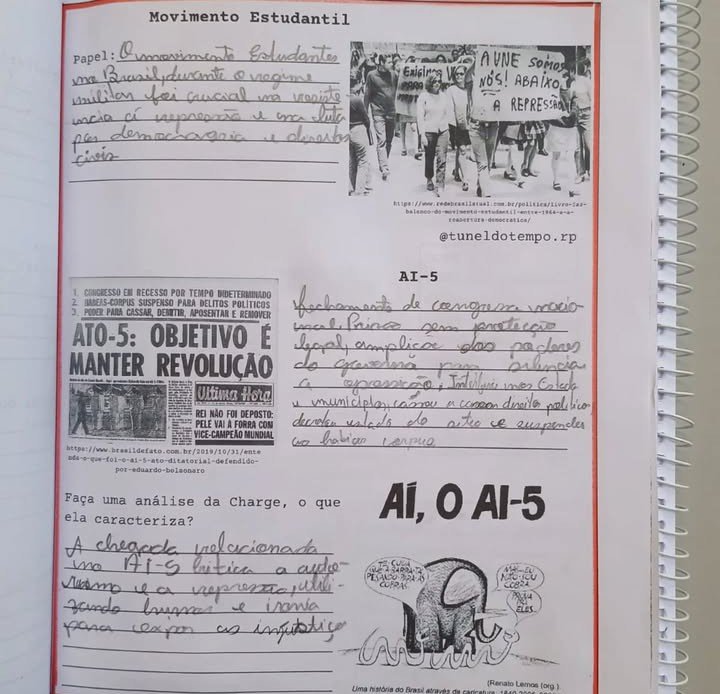 Movimento Estudantil
Papel: O movimento Estudantes
no Brasil, durante o regime
militar foi crucial na resist
encia a repressão e na luta
por democracia e direitos
civis
Exigimos
A UNE SOMOS
NÓS! ABAIXO
A REPRESSÃO
https://www.redebrasilatual.com.br/politica/livro-faz-
balanco-do-movimento-estudantil-entre-1964-e-a-
reabertura-democratica/
@tuneldotempo.rp
1. CONGRESSO EM RECESSO POR TEMPO INDETERMINADO
2. HABEAS-CORPUS SUSPENSO PARA DELITOS POLÍTICOS
3. PODER PARA CASSAR, DEMITIR, APOSENTAR E REMOVER
ATO-5: OBJETIVO É
MANTER REVOLUÇÃO
Ultima Hora
REI NÃO FOI DEPOSTO:
PELÉ VAI À FORRA COM
VICE-CAMPEÃO MUNDIAL
https://www.brasildefato.com.br/2019/10/31/ente
nda-o-que-foi-o-ai-5-ato-ditatorial-defendido-
por-eduardo-bolsonaro
AI-5
fechamento de congresso nacio
nal, sem
legal, dos poderes
do para
a Intervir nos Estado
e municipios, direitos politicos,
do sitio e
habias corpus
Faça uma análise da Charge, o que
ela caracteriza?
A relacionada
no AI-5 critica a
rismo e a repressão, utili
zando humor e ironia
para expor as injustiças
AÍ, O AI-5
QUE A BARRA TÁ
PESANDO PRA AS
COBRAS
MAS... EU
NÃO SOU
COBRA.
PROVA
PRA
ELES.
(Renato Lemos (org.)
Uma história do Brasil através da caricatura: